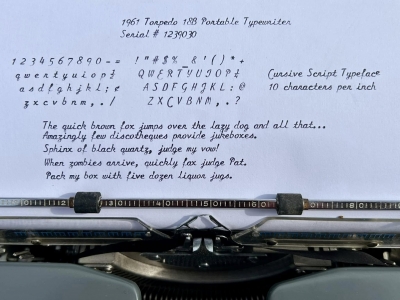 1961 Torpedo 18B Portable Typewriter
Serial # 1239030
1 2 3 4 5 6 7 8 9 0 - = ! " # $ % _ & ' ( ) * +
q w e r t y u i o p ½ Q W E R T Y U I O P ¼
a s d f g h j k l ; ¢ A S D F G H J K L : @
z x c v b n m , . / Z X C V B N M , . ?
Cursive Script Typeface
10 characters per inch
The quick brown fox jumps over the lazy dog and all that...
Amazingly few discotheques provide jukeboxes.
Sphinx of black quartz, judge my vow!
When zombies arrive, quickly fax judge Pat.
Pack my box with five dozen liquor jugs.